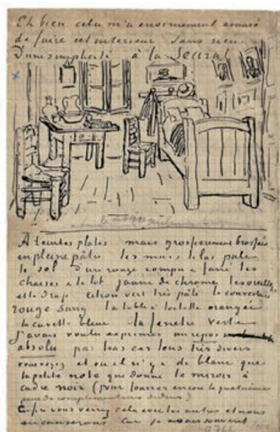 Eh bien cela m'a enormement amusé
de faire cet interieur sans rien
D'une simplicité à la Seurat
À teintes plates mais grossierement brossé
en pleine pâte les murs lilas pale
le sol d'un rouge rompu & fané les
chaises & le lit jaune de chrome les oreillers
et le drap citron vert très pâle la couverture
rouge sang la table à toilette orangée
la cuvette bleue la fenêtre verte
J'avais voulu exprimer un repos
absolu par tous ces tons très divers
vous voyez et où il n'y a de blanc que
la petite note que donne le miroir à
cadre noir (pour fourrer encore la quatrième
paire de complémentaires dedans)
Enfin vous verrez cela avec les autres et nous
en causerons car je souvent